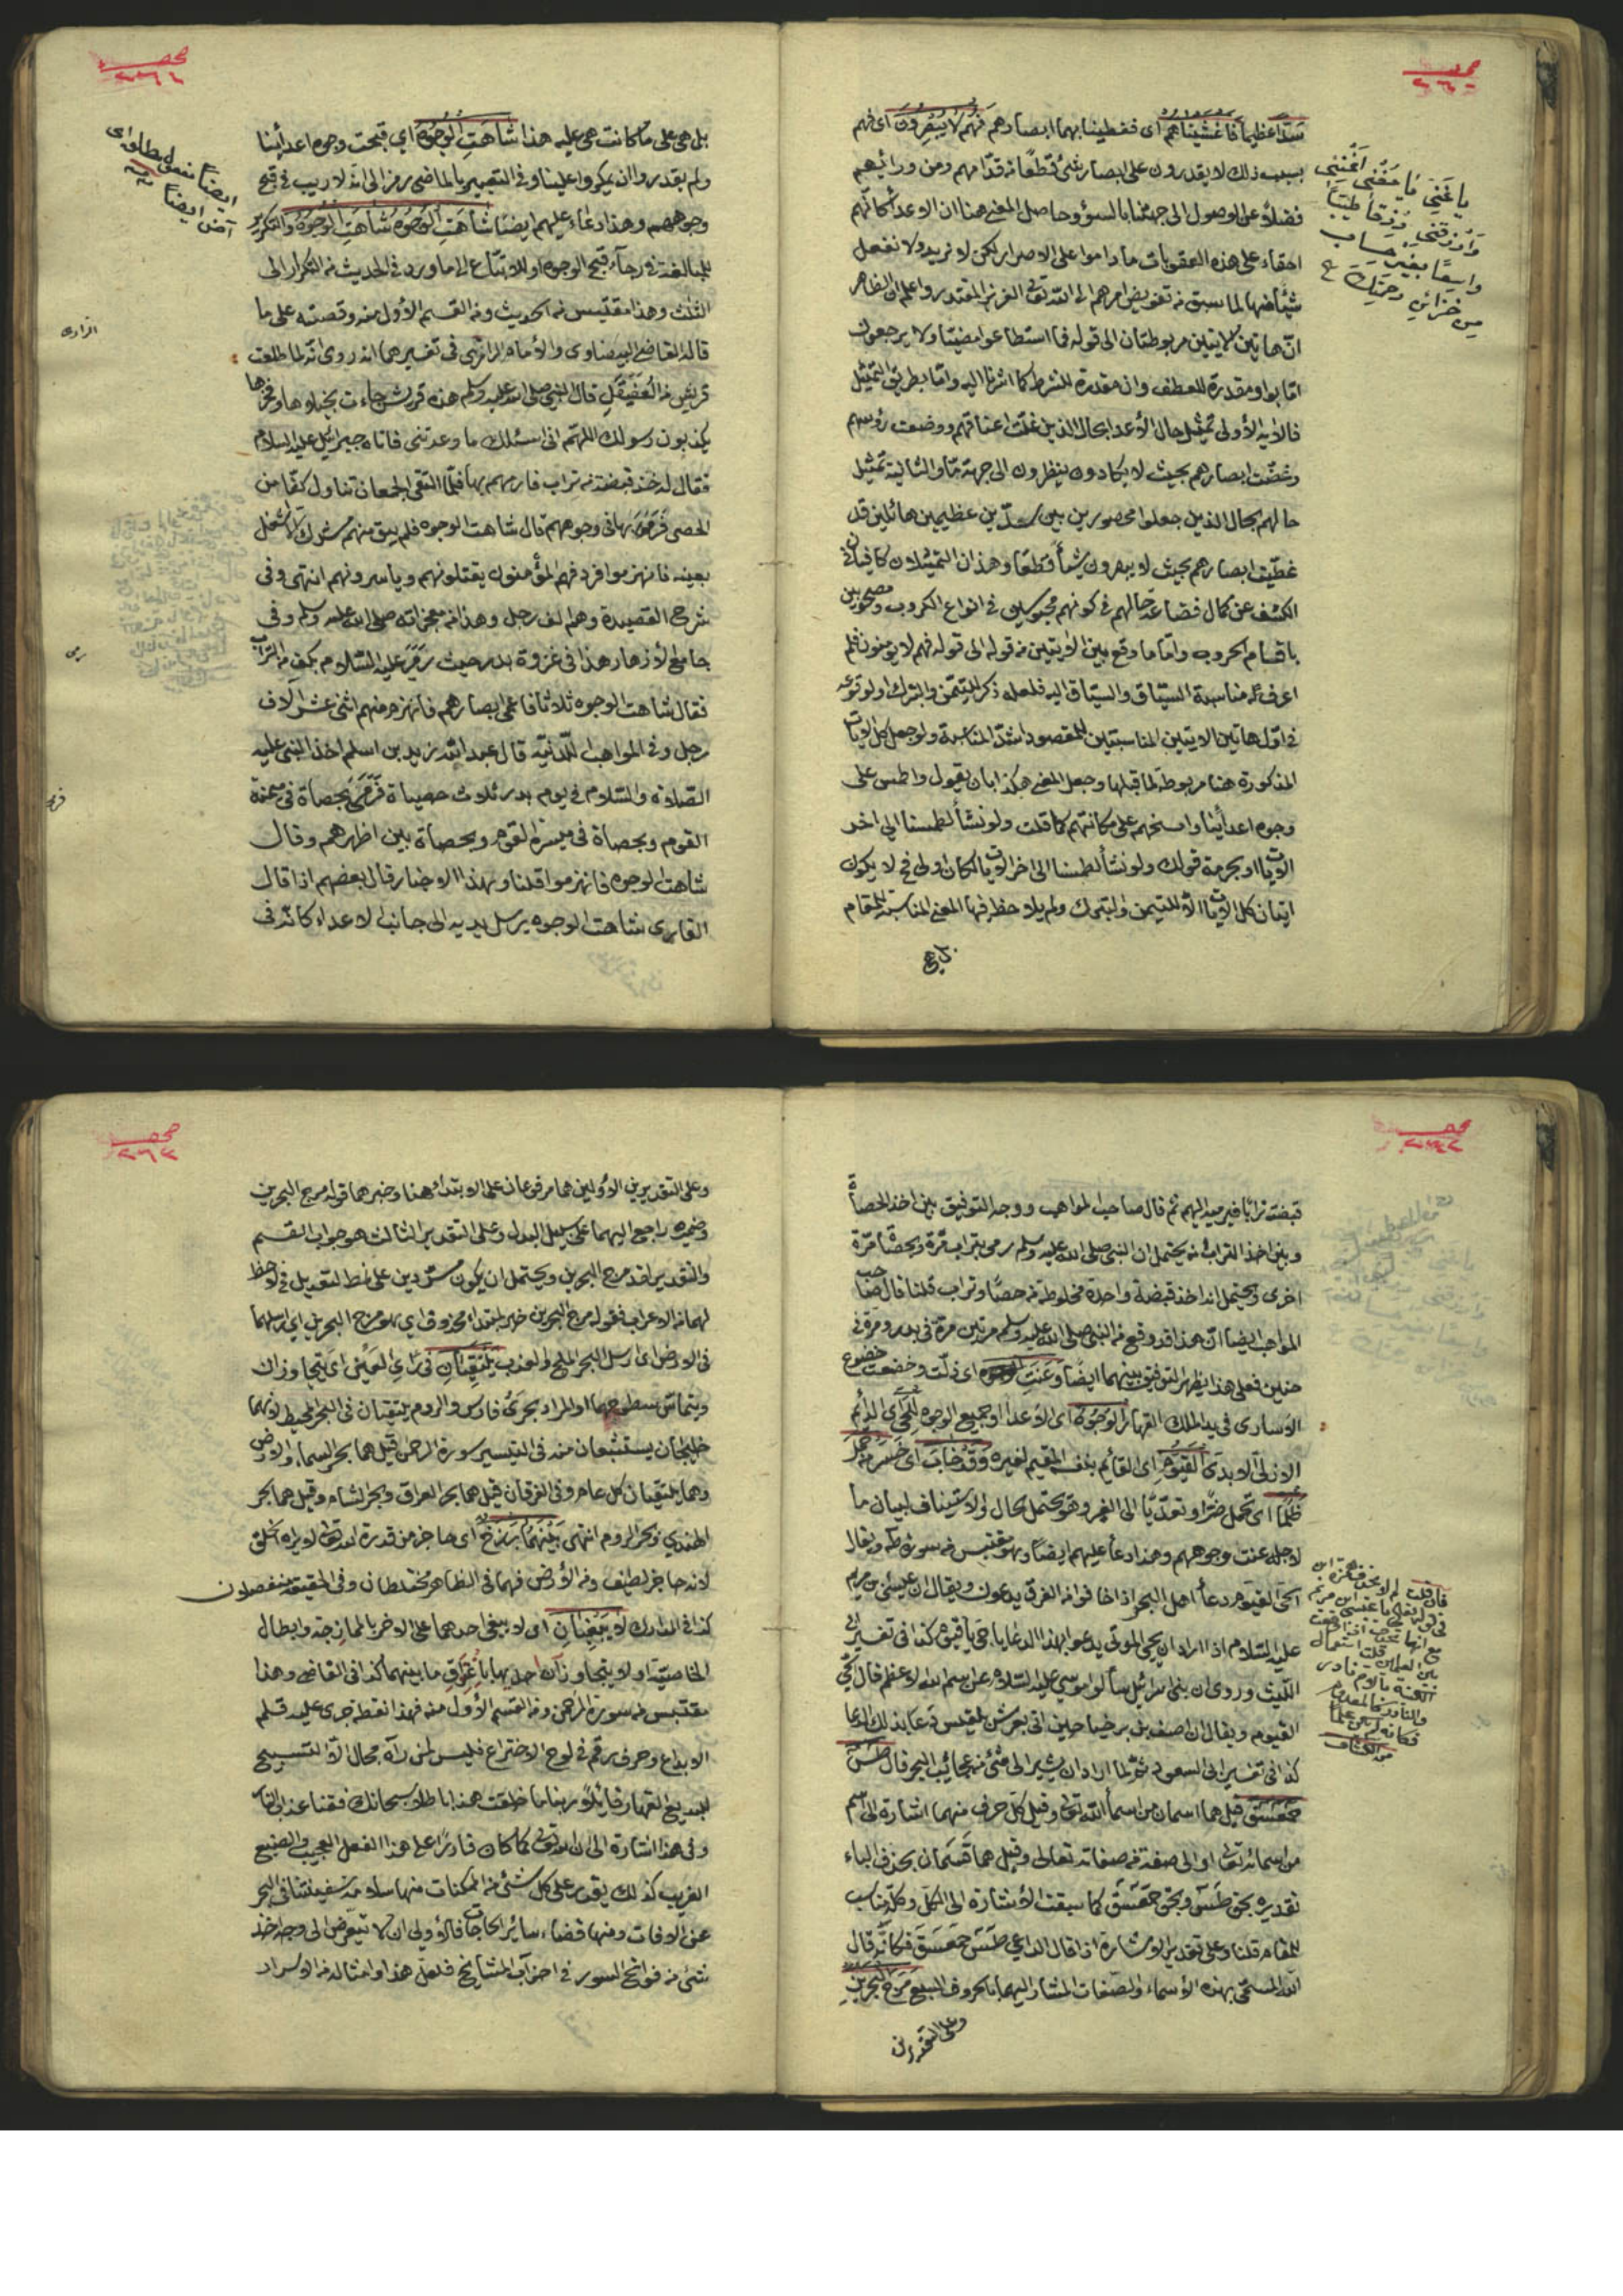 سدا عظيما فَاَغْشَيْنَاهُمْ اى فغطينا بهما ابصارهم فَهُمْ لَا يُبْصِرُونَ اى فهم
بسبب ذلك لا يقدرون على ابصار شئ قطعا من قدامهم ومن ورائهم
فضلا عن الوصول الى جهتنا بالسوء وحاصل المعنى هنا ان الاعداء كانهم
احقاء على هذه العقوبات ما داموا على الاصرار لكن لا نريد ولا نفعل
شيئا منها لما سبق من تفويض امرهم الى الله تعالى العزيز المقتدر واعلم ان الظاهر
ان هاتين الايتين مربوطتان الى قوله فما استطاعوا مضيا ولا يرجعون
اما بواو مقدرة للعطف وان مقدرة للشرط كما اشرنا اليه واما بطريق التمثيل
فالاية الاولى تمثيل حال الاعداء بحال الذين غلت اعناقهم ووضعت رؤسهم
وغضت ابصارهم بحيث لا يكادون ينظرون الى جهة ما والثانية تمثيل
حالهم بحال الذين جعلوا محصورين بين سدين عظيمين هائلين قد
غطيت ابصارهم بحيث لا يبصرون شيئا قطعا وهذان التمثيلان كافيان فى
الكشف عن كمال فضاعة حالهم فى كونهم محبوسين فى انواع الكروب ومصحوبين
باقسام الحروب واما ما وقع بين الايتين من قوله الى قوله فهم لا يؤمنون فلم
اعرف له مناسبة السياق والسباق اليه فلعله ذكر للتيمن والتبرك او لوقوعه
فى اول هاتين الايتين المناسبتين للمقصود اشد المناسبة ولو جعل كل الايات
المذكورة هنا مربوطة لما قبلها وجعل المعنى هكذا بان يقول واطمس على
وجوه اعدائنا وامسخهم على مكانتهم كما قلت ولو نشاء لطمسنا الى اخر
الايات او بحرمة قولك ولو نشاء لطمسنا الى اخر الايات لكان اولى فح لا يكون
اتيان كل الايات الا للتيمن والتبرك ولم يلاحظ فيها المعنى المناسب للمقام
بل هى
يا غَنِىُّ يَا مُغْنِى اَغْنِنِى
وَارْزُقْنِى رِزْقًا طَيِّبًا
وَاسِعًا بِغَيْرِ حِسَابٍ
مِنْ خَزَائِنِ رَحْمَتِكَ
بل هى على ما كانت هى عليه هذا شَاهَتِ الْوُجُوهُ اى قبحت وجوه اعدائنا
ولم يقدروا ان يمكروا علينا وفى التعبير بالماضى رمز الى انه لا ريب فى قبح
وجوههم وهذا دعاء عليهم ايضا شَاهَتِ الْوُجُوهُ شَاهَتِ الْوُجُوهُ والتكرير
للمبالغة فى رجاء قبح الوجوه او للاتباع الى ما ورد فى الحديث من التكرار الى
الثلث وهذا مقتبس من الحديث ومن القسم الاول منه وقصته على ما
قاله القاضى البيضاوى والامام الرازى فى تفسيرهما انه روى انه لما طلعت
قريش من العقنقل قال النبى صلى الله عليه وسلم هذه قريش جاءت بخيلاءها وفخرها
يكذبون رسولك اللهم انى اسئلك ما وعدتنى فاتاه جبرائيل عليه السلام
فقال له خذ قبضة من تراب فارمهم بها فلما التقى الجمعان تناول كفا من
الحصى فرمى بها فى وجوههم قال شاهت الوجوه فلم يبق منهم مشرك الا شغل
بعينه فانهزموا فردفهم المؤمنون يقتلونهم وياسرونهم انتهى وفى
شرح القصيدة وهم الف رجل وهذا من معجزاته صلى الله عليه وسلم وفى
جامع الازهار هذا فى غزوة بدر حيث رمى عليه السلام بكف من التراب
فقال شاهت الوجوه ثلاثا فاعمى ابصارهم فانهزم منهم اثنى عشر الاف
رجل وفى المواهب اللدنية قال عبد الله زيد بن اسلم اخذ النبى عليه
الصلاة والسلام فى يوم بدر ثلاث حصيات فرمى بحصاة فى ميمنة
القوم وبحصاة فى ميسرة القوم وبحصاة بين اظهرهم وقال
شاهت الوجوه فانهزموا قلنا وبهذا الاخبار قال بعضهم اذا قال
القارى شاهت الوجوه يرسل يديه الى جانب الاعداء كانه فى
الرازى
قبضته ترابا فيرميه اليهم ثم قال صاحب المواهب ووجه التوفيق بين اخذ الحصاة
وبين اخذ التراب انه يحتمل ان النبى صلى الله عليه وسلم رمى بتراب مرة وبحصاة مرة
اخرى ويحتمل انه اخذ قبضة واحدة مخلوطة من حصا وتراب قلنا قال صاحب
المواهب ايضا ان هذا قد وقع من النبى صلى الله عليه وسلم مرتين مرة فى بدر ومرة فى
حنين فعلى هذا يظهر التوفيق بينهما ايضا وَعَنَتِ الْوُجُوهُ اى ذلت وخضعت خضوع
الاسارى فى يد الملك القهار الْوُجُوهُ اى الاعداء او جميع الوجوه لِلْحَىِّ اى الدائم
الازلى الابدى الْقَيُّومِ اى القائم بنفسه المقيم لغيره وَقَدْ خَابَ اى خسر مَنْ حَمَلَ
ظُلْمًا اى تحمل ضرا وتعديا الى الغير وهو يحتمل الحال والاستيناف لبيان ما
لاجله عنت وجوههم وهذا دعاء عليهم ايضا وهو مقتبس من سورة طه ويقال
الحى القيوم دعاء اهل البحر اذا خافوا من الغرق يدعون ويقال ان عيسى بن مريم
عليه السلام اذا اراد ان يحيى الموتى يدعو بهذا الدعاء يا حى يا قيوم كذا فى تفسير ابى
الليث وروى ان بنى اسرائيل سألوا موسى عليه السلام عن اسم الله الاعظم قال الحى
القيوم ويقال ان اصف بن برخيا حين اتى بعرش بلقيس دعا بذلك الدعا
كذا فى تفسير ابى السعود ثم لما اراد ان يشير الى شئ من عجائب البحر قال طسٓ
حٓمٓعٓسٓقٓ قيل هما اسمان من اسماء الله تعالى وقيل كل حرف منهما اشارة الى اسم
من اسمائه تعالى او الى صفة من صفاته تعالى وقيل هما قسمان بحذف الباء
تقديره بحق طس وبحق حمعسق كما سبقت الاشارة الى الكل وكله يناسب
للمقام قلنا وعلى تقدير الاشارة اذا قال الداعى طس حمعسق فكانه قال
الله المسمى بهذه الاسماء والصفات المشار اليها بالحروف السبع مَرَجَ الْبَحْرَيْنِ
وعلى التقديرين
وعلى التقديرين الاولين هما مرفوعان على الابتداء هنا وخبرهما قوله مرج البحرين
وضميره راجع اليهما على سبيل البدل وعلى التقدير الثالث هو جواب القسم
والتقدير لقد مرج البحرين ويحتمل ان يكون مسرودين على نمط التعديل فلا حظ
لهما من الاعراب فقوله مرج البحرين خبر لمبتداء محذوف اى هو مرج البحرين اى ارسلهما
فى الارض اى ارسل البحر الملح والعذب يَلْتَقِيَانِ فى رأى العين اى يتجاوزان
ويتماس سطوحهما او المراد بحرى فارس والروم يلتقيان فى البحر المحيط لانهما
خليجان يتشعبان منه فى التيسير سورة الرحمن قيل هما بحر السماء والارض
وهما يلتقيان كل عام وفى الفرقان قيل هما بحر العراق وبحر الشام وقيل هما بحر
الهندى وبحر الروم انتهى بَيْنَهُمَا بَرْزَخٌ اى حاجز من قدرة الله تعالى لا يراه الخلق
لانه حاجز لطيف ومن الارض فهما فى الظاهر مختلطان وفى الحقيقة منفصلان
كذا فى المدارك لَا يَبْغِيَانِ اى لا يبغى احدهما على الاخر بالممازجة وابطال
الخاصية او لا يتجاوزان حديهما باغراق ما بينهما كذا فى القاضى وهذا
مقتبس من سورة الرحمن ومن القسم الاول منه فهذا نقطة جرى عليه قلم
الابداع وحرف رقم فى لوح الاختراع فليس لمن راه مجال الا التسبيح
للبديع القهار قائلا ربنا ما خلقت هذا باطلا سبحانك فقنا عذاب النار
وفى هذا اشارة الى ان الله تعالى كما كان قادرا على هذا الفعل العجيب والصنيع
الغريب كذلك يقدر على كل شئ من الممكنات منها سلامة سفينتنا فى البحر
عن الافات ومنها قضاء سائر الحاجات فالاولى ان لا يتعرض الى وجه اخذ
شئ من فواتح السور فى احزاب المشايخ فلعل هذا وامثاله من الاسرار